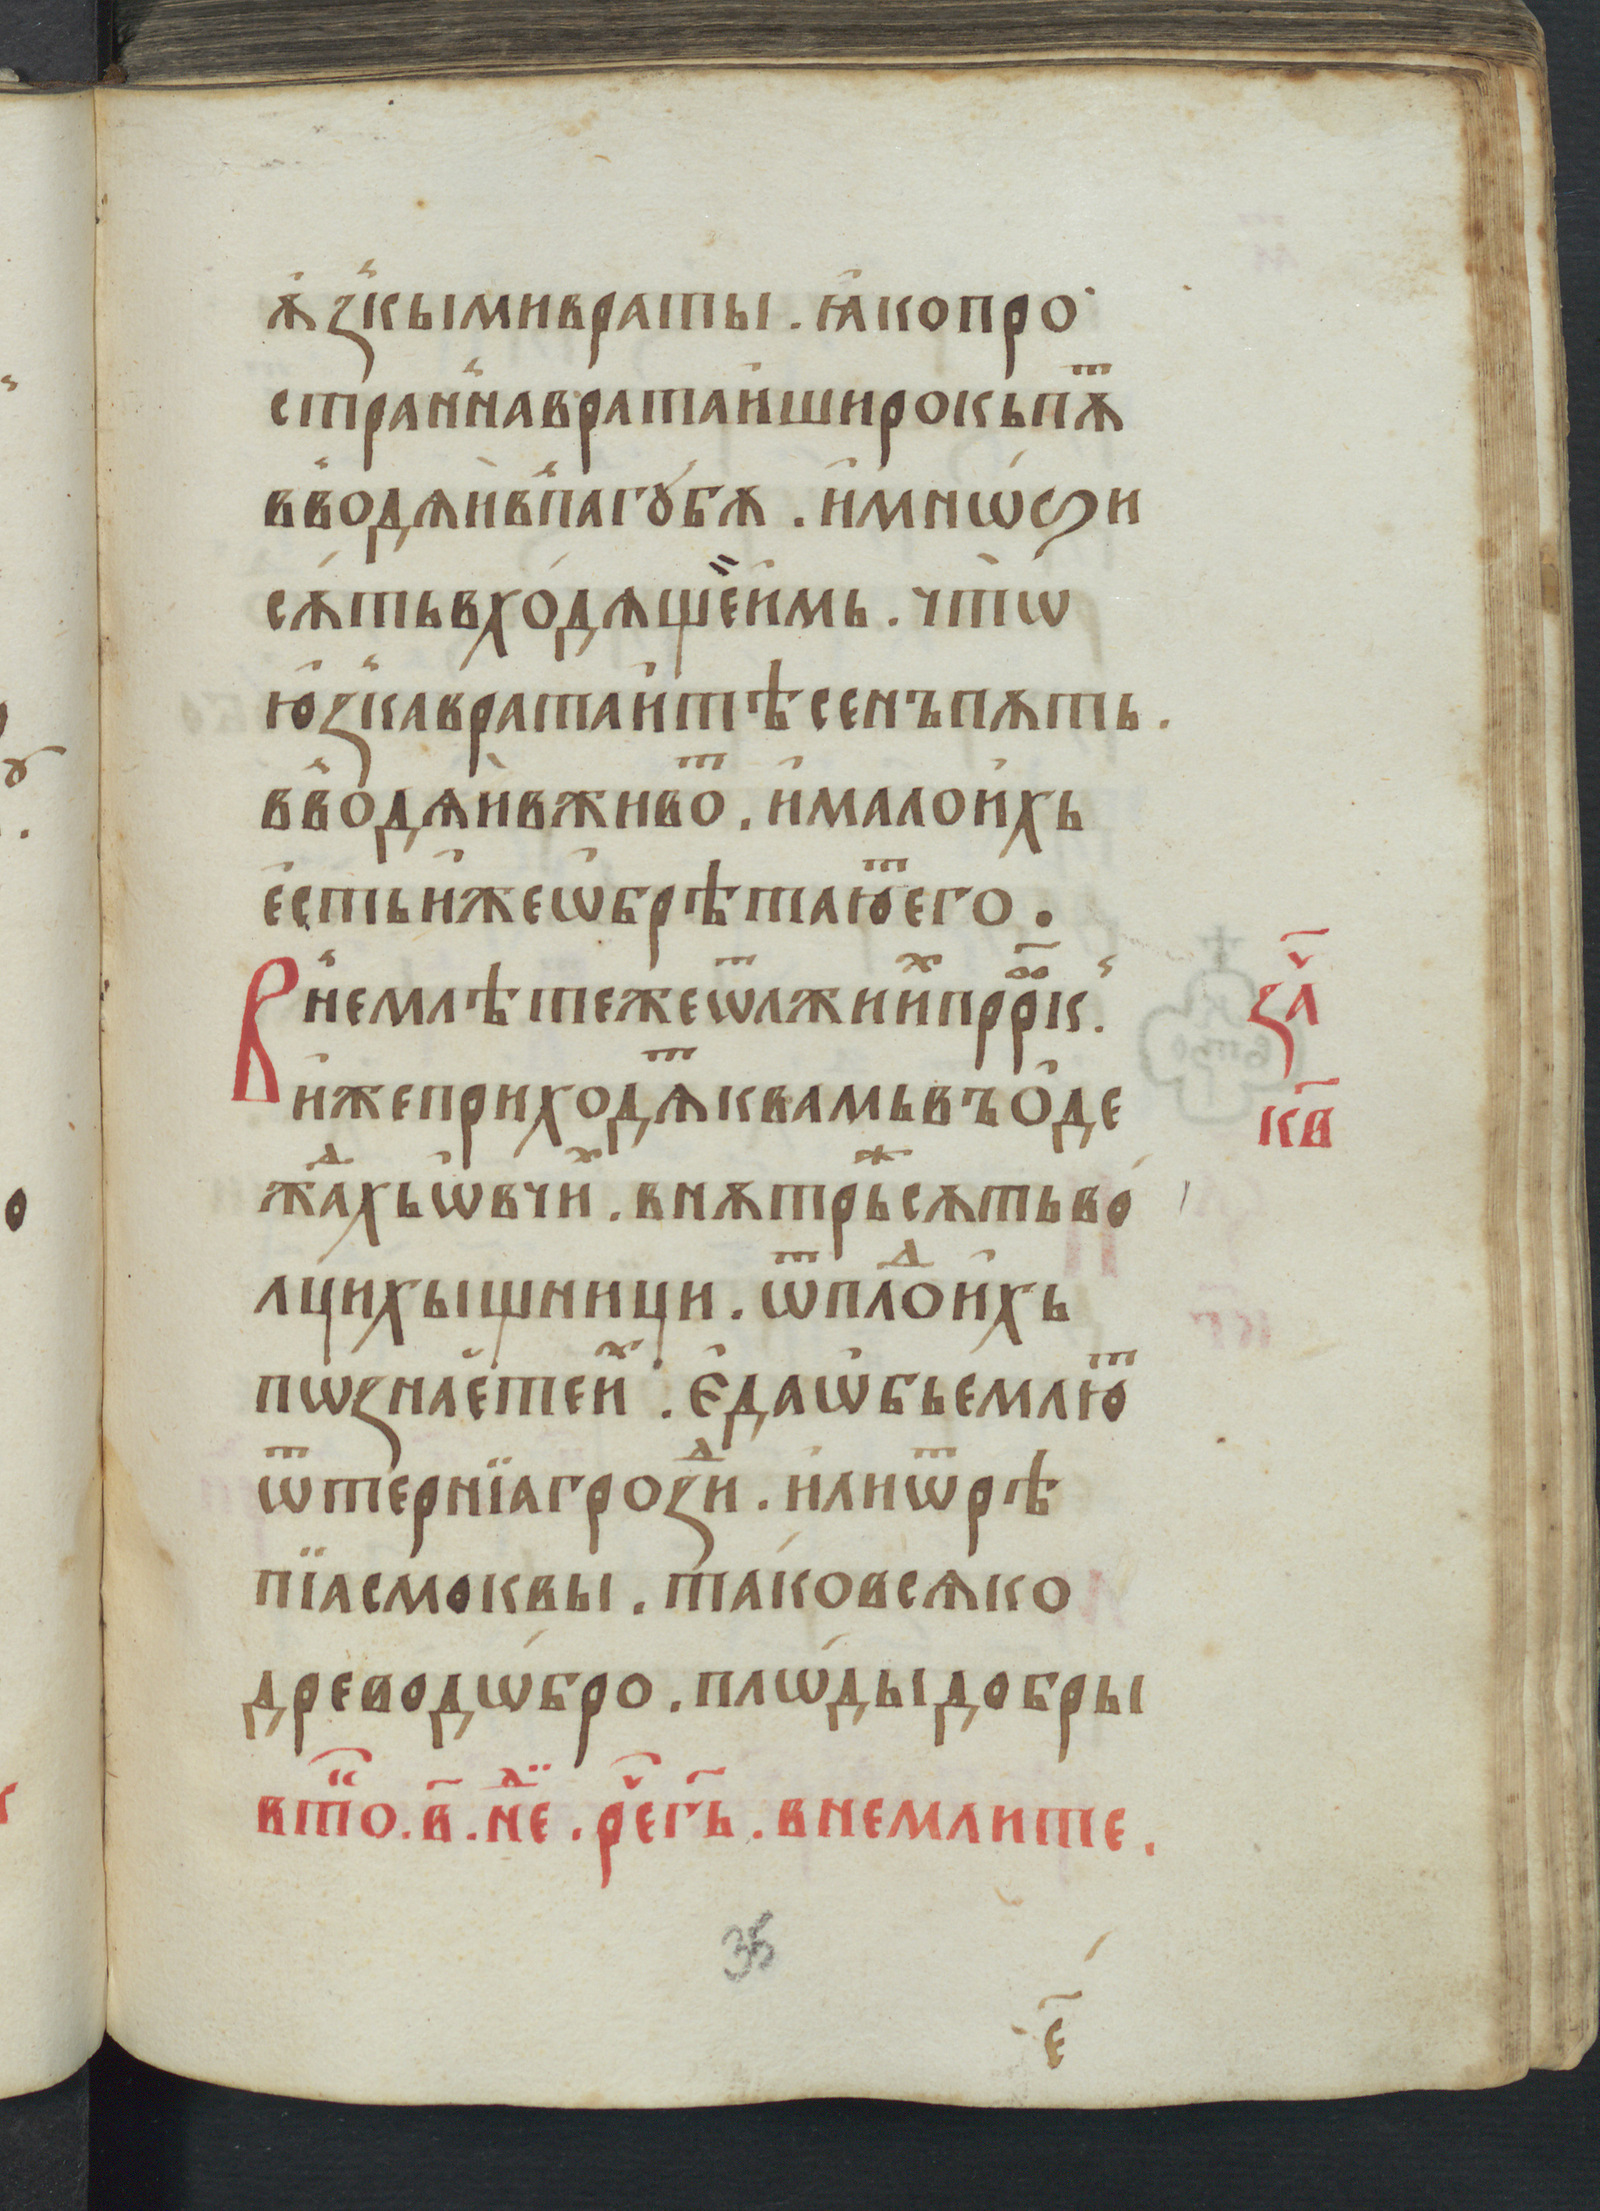 ѫ҆зкы́миврати. ꙗ҆копро
страннавратаи҆широкьпѫⷮ
вво́дѧи҆впагꙋ́бѫ. и҆мнѡѕи
сѫ́тьвхо́дѧщеи҆мь. чтѡ̀
ю҆зкавратаи҆тѣсенъпѫть.
вво́дѧи҆вживоⷮ. и҆малои҆хь
е҆стьи҆жеѡ҆брѣтаюⷮего.
Внемлѣтежеѿлжииⷯпрⷪ҇рѡк.
и҆жеприходѧⷮквамьвъо҆де
жаⷣхьѡ҆вчиⷯ. внѫтрьⷤсѫтьво́
лцихыщници. ѿплоⷣи҆хь
пѡзнаетеиⷯ. Є҆даѡ҆бьемлюⷮ
ѿтернїагрозⷣи. и҆лиѿрѣ
пїасмоквы. та́ковсѧко
древодѡ́бро. плѡ́дыдобры
вто҃. в҃. неⷣ. ре҃гь҃. внемлите.
за҃ⷱ
кв҃
35
е҃